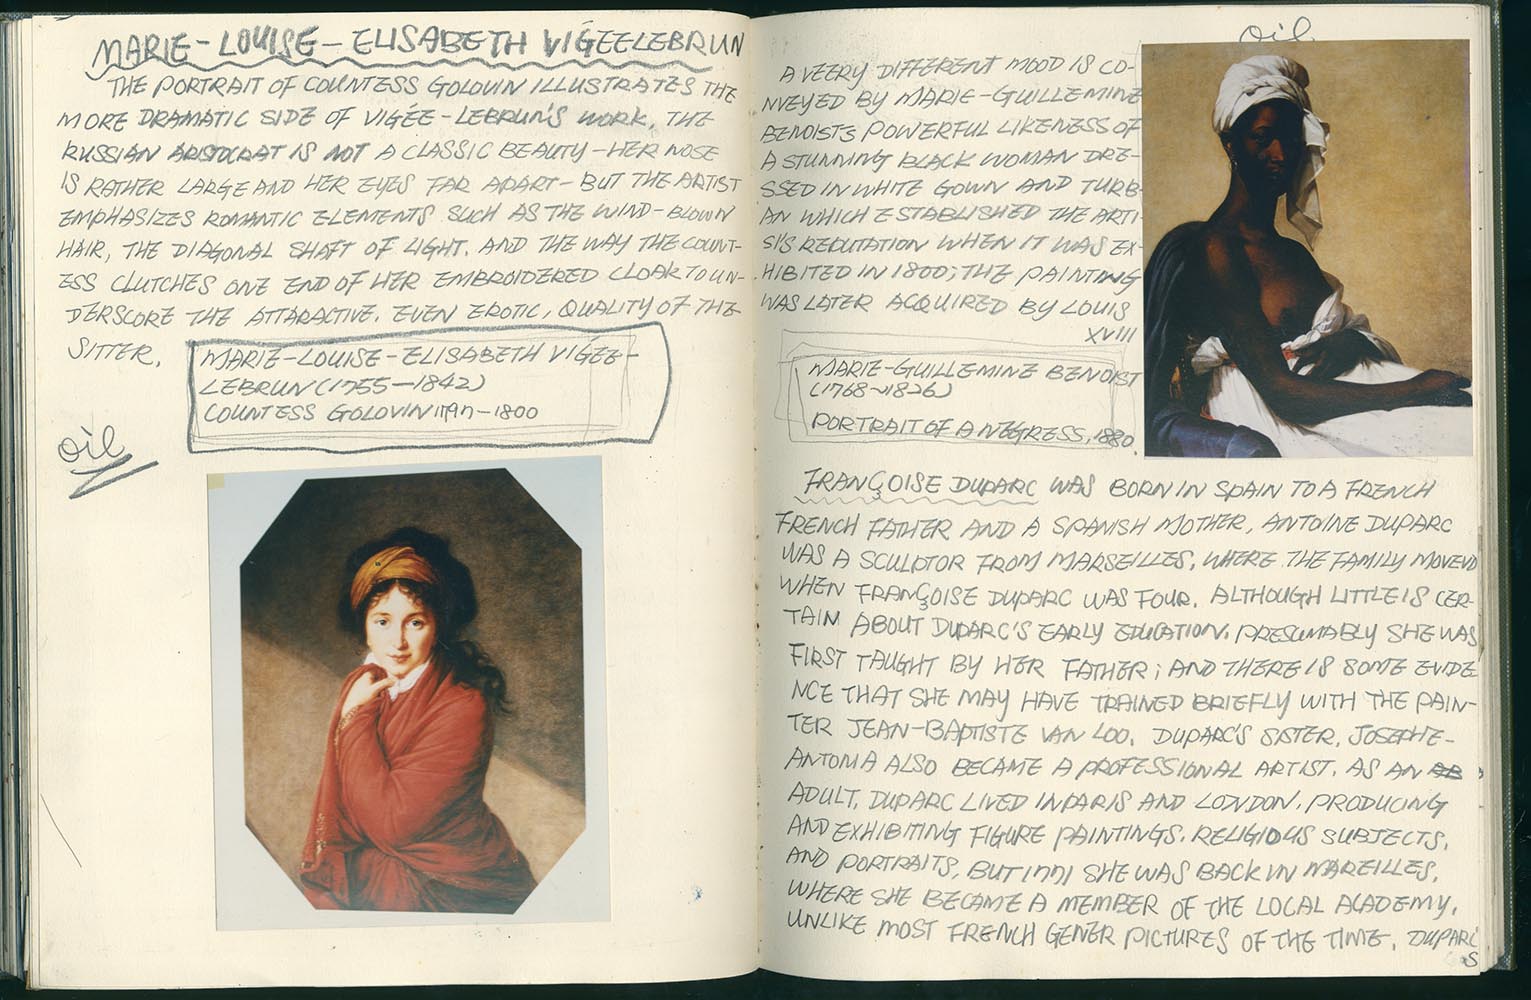 MARIE-LOUISE-ELISABETH VIGÉELEBRUN
THE PORTRAIT OF COUNTESS GOLOVIN ILLUSTRATES THE
MORE DRAMATIC SIDE OF VIGÉE-LEBRUN'S WORK. THE
RUSSIAN ARISTOCRAT IS NOT A CLASSIC BEAUTY-HER NOSE
IS RATHER LARGE AND HER EYES FAR APART-BUT THE ARTIST
EMPHASIZES ROMANTIC ELEMENTS SUCH AS THE WIND-BLOWN
HAIR, THE DIAGONAL SHAFT OF LIGHT. AND THE WAY THE COUNT-
ESS CLUTCHES ONE END OF HER EMBROIDERED CLOAK TO UN-
DERSCORE THE ATTARACTIVE. EVEN EROTIC, QUALITY OF THE
SITTER.
MARIE-LOUISE-ELISABETH VIGÉE-
LEBRUN (1755-1842)
COUNTESS GOLOVIN 1797-1800
oil
oil
A VEERY DIFFERENT MOOD IS CO-
NVEYED BY MARIE-GUILLEMINE
BENOIST'S POWERFUL LIKENESS OF
A STUNNING BLACK WOMAN DRE-
SSED IN WHITE GOWN AND TURB-
AN WHICH ESTABLISHED THE ARTI-
SI'S REPUTATION WHEN IT WAS EX-
HIBITED IN 1800; THE PAINTING
WAS LATER ACQUIRED BY LOUIS
XVIII
MARIE-GUILLEMINE BENOIST
(1768~1826)
PORTRAIT OF A NEGRESS, 1880
FRANÇOISE DUPARC WAS BORN IN SPAIN TO A FRENCH
FRENCH FATHER AND A SPANISH MOTHER, ANTOINE DUPARC
WAS A SCULPTOR FROM MARSEILLES, WHERE THE FAMILY MOVEVD
WHEN FRANÇOISE DUPARC WAS FOUR. ALTHOUGH LITTLE IS CER-
TAIN ABOUT DUPARC'S EARLY EDUCATION. PRESUMABLY SHE WAS
FIRST TAUGHT BY HER FATHER; AND THERE IS SOME EVIDE
NCE THAT SHE MAY HAVE TRAINED BRIEFLY WITH THE PAIN-
TER JEAN-BAPTISTE VAN LOO. DUPARC'S SISTER, JOSEPHE-
ANTONIA ALSO BECAME A PROFESSIONAL ARTIST. AS AN
ADULT, DUPARC LIVED IN PARIS AND LONDON, PRODUCING
AND EXHIBITING FIGURE PAINTINGS. RELIGIOUS SUBJECTS.
AND PORTRAITS, BUT 1771 SHE WAS BACK IN MAREILLES,
WHERE SHE BECAME A MEMBER OF THE LOCAL ACADEMY.
UNLIKE MOST FRENCH GENER PICTURES OF THE TIME, DUPARC'
S